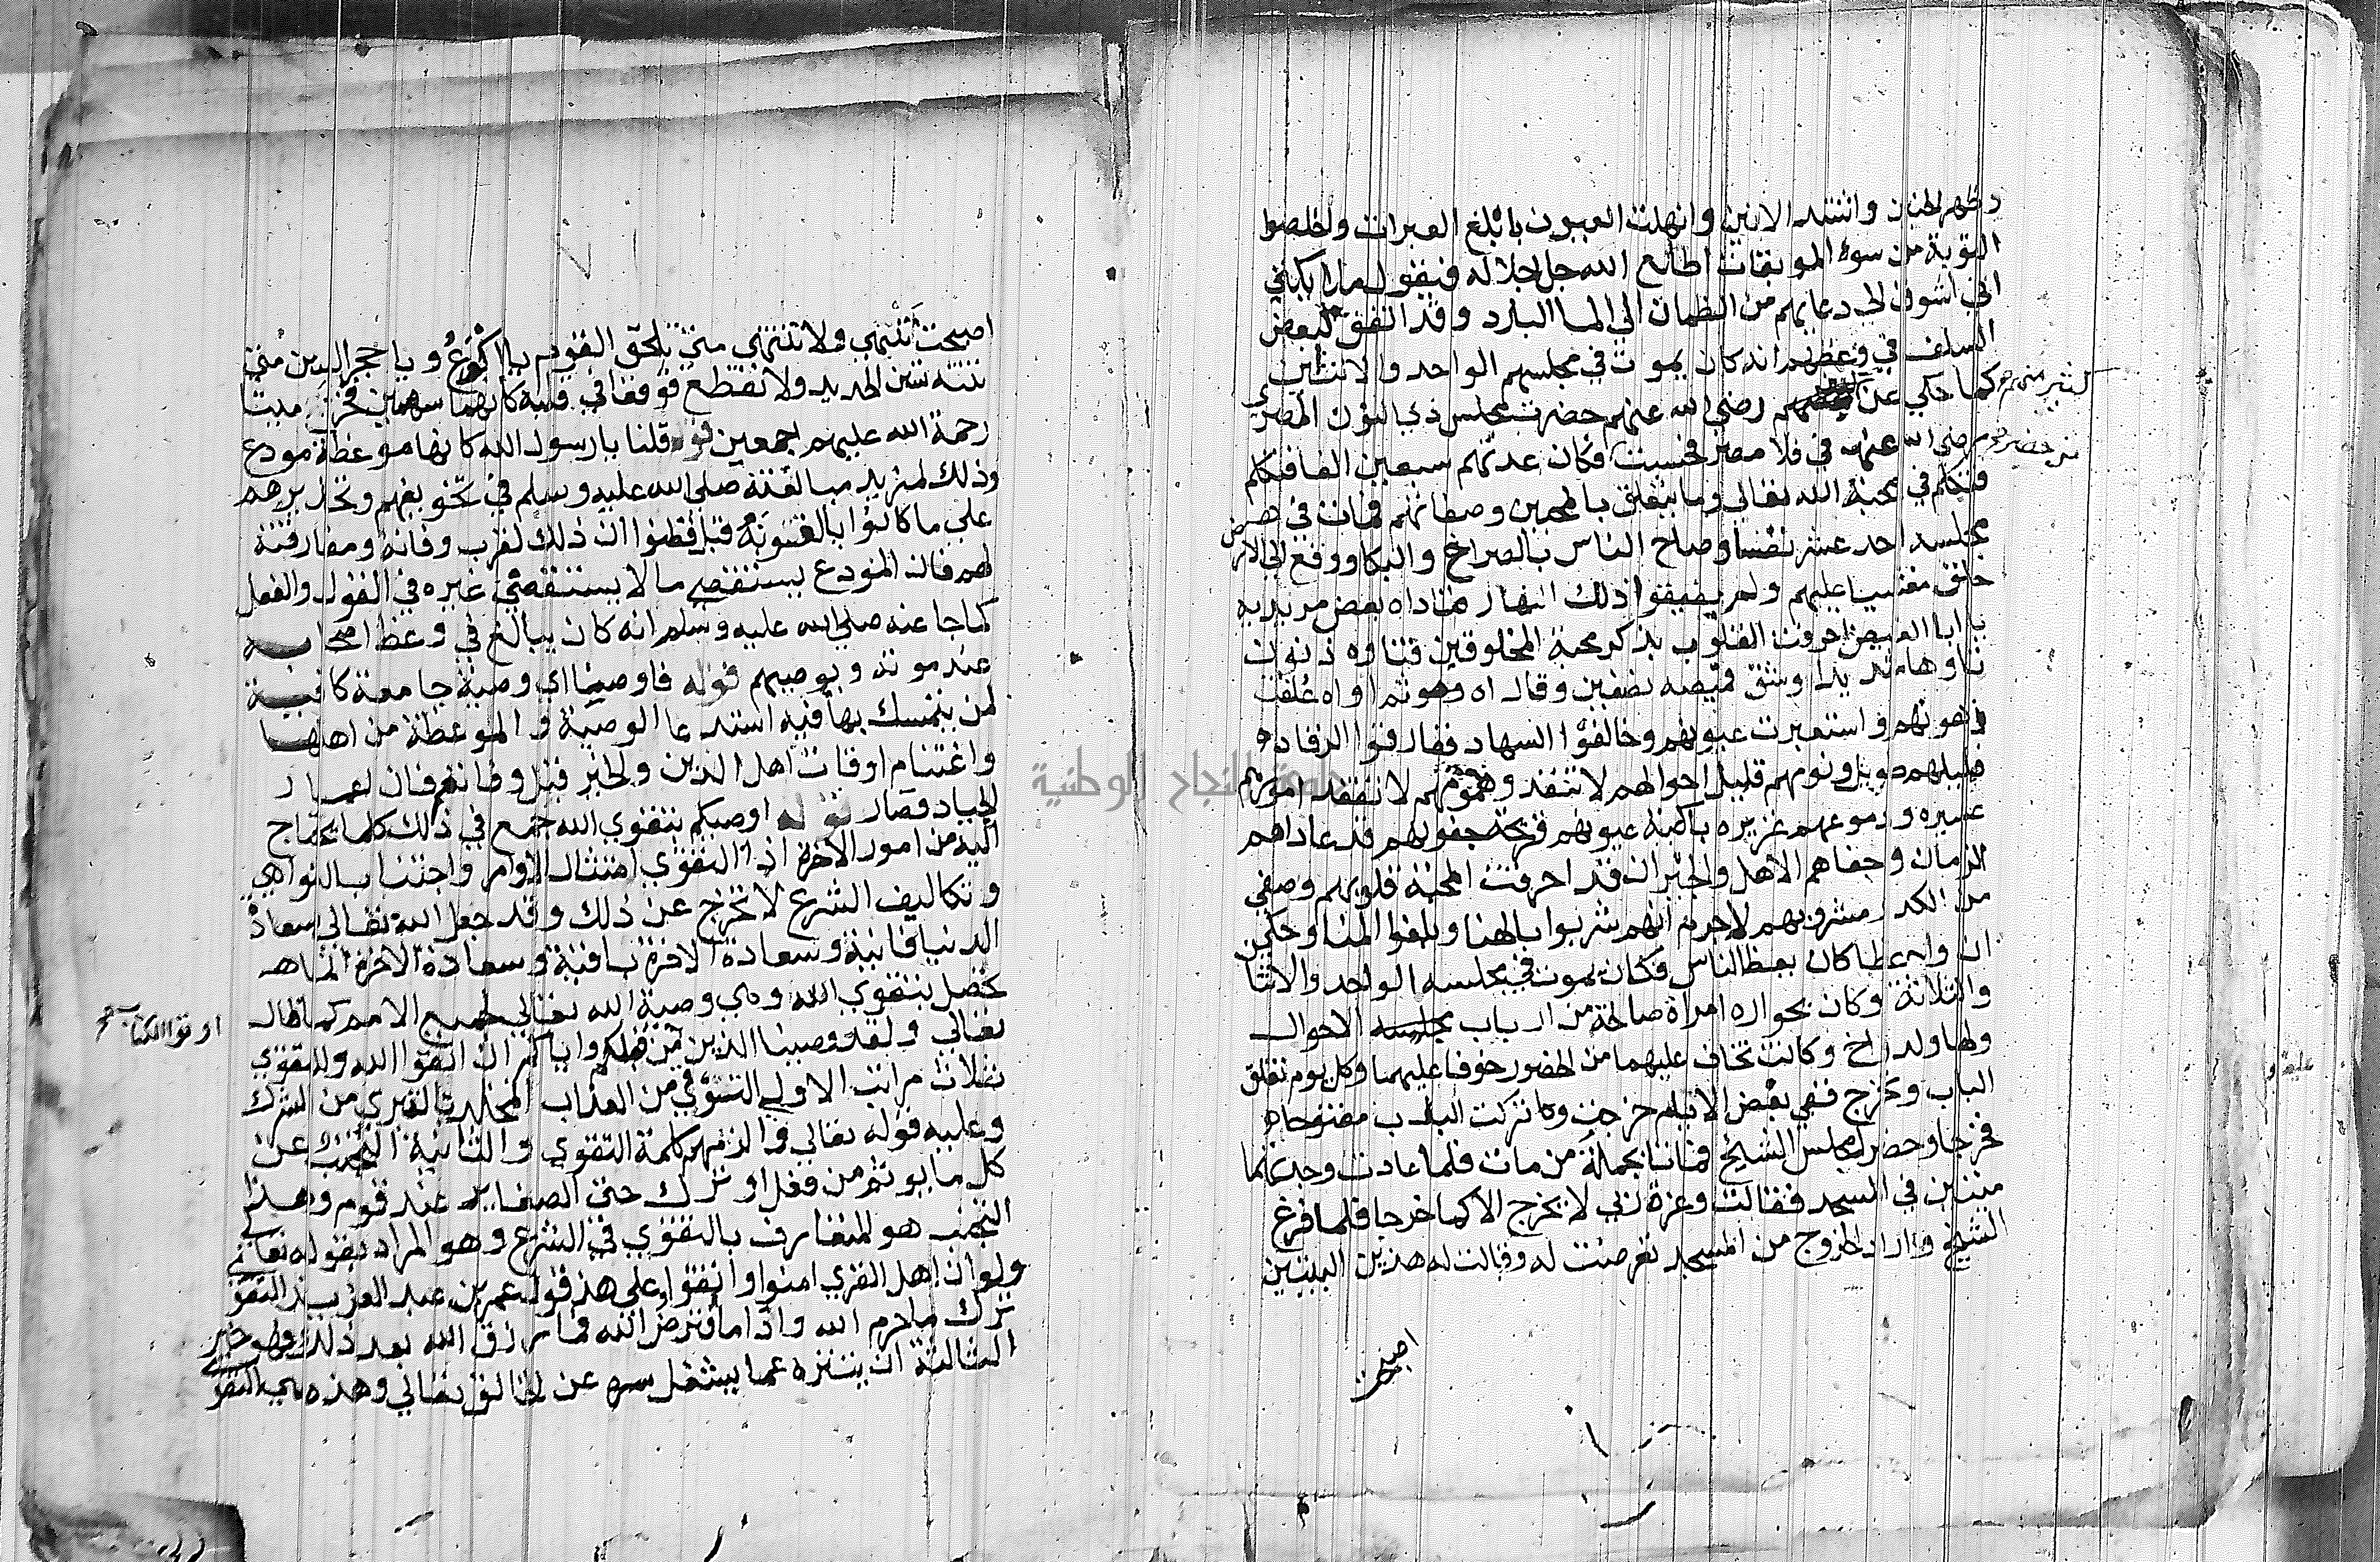 وظهر الحنان واشتد الانين وانهلت العيون بابلغ العبرات واخلصوا
التوبة من سوء الموبقات اطالع الله جل جلاله فيقول ملائكتي
اني اشوق الي دعايهم من الظمان الي الما البارد وقد اتفق لبعض
السلف في وعظهم انه كان يموت في مجلسهم الواحد والاثنين
كما حكي عن كثير منهم رضي الله عنهم حضرت مجلس ذي النون المصري
رضي الله عنه في فلا مصر فحسبت فكان عدتهم سبعين الفا فتكلم
فتكلم في محبة الله تعالي وما يتعلق بالمحبين وصفاتهم فمات في
مجلسه احد عشر نفسا وصاح الناس بالصراخ والبكا ووقع الي الارض
خلق مغشيا عليهم ولم يفيقوا ذلك النهار فناداه بعض مريديه
يا ابا الفيض احرقت القلوب بذكر محبة المخلوقين فتاوه ذنون
تاوها شديدا وشق قميصه نصفين وقال اه وهو ثم اواه علقت
رهونهم واستعبرت عيونهم وخالفوا السهاد ففارقوا الرقاد
فليلهم طويل ونومهم قليل احوالهم لا تنفد وهمومهم لا تفقد امورهم
عسيره ودموعهم غزيره باكية عيونهم قريحة جفونهم قد عاداهم
الزمان وجفاهم الاهل والجيران قد احرقت المحبة قلوبهم وصفي
من الكدر مشروبهم لاجرم انهم شربوا بالهنا وبلغوا المنا وحكي
ان واعظا كان يعظ الناس فكان يموت في مجلسه الواحد والاثنا
والثلاثة وكان بجواره امراة صالحة من ارباب الاحوال
ولها ولد واخ وكانت تخاف عليهما من الحضور خوفا عليهما وكل يوم تغلق
الباب وتخرج ففي بعض الايام خرجت وتركت الباب مفتوحا
فخرجا وحضرا مجلس الشيخ فماتا بجملة من مات فلما عادت وجدتهما
ميتين في المسجد فقالت وعزة ربي لا يخرج الا كما خرجا فلما فرغ
الشيخ واراد الخروج من المسجد تعرضت له وقالت له هذين البيتين
اصبحت
اصبحت تنهي ولا تنتهي متي تلحق القوم يا اكوع ويا حجر السن متي
تسن الحديد ولا تقطع فوقعا في قلبه كانهما سهمين فخر ميتا
رحمة الله عليهم اجمعين قوله قلنا يا رسول الله كانها موعظة مودع
وذلك لمزيد مبالغته صلي الله عليه وسلم في تخويفهم وتحذيرهم
علي ما كانوا يالفونه قبل فظنوا ان ذلك لقرب وفاته ومفارقته
لهم فان المودع يستقصي ما لا يستقصي غيره في القول والفعل
كما جا عنه صلي الله عليه وسلم انه كان يبالغ في وعظ اصحابه
عند موته ويوصيهم قوله فاوصنا اي وصية جامعة كافية
لمن يتمسك بها فيه استدعا الوصية والموعظة من اهلها
واغتنام اوقات اهل الدين والخير قبل وفاتهم فان اعمار
الجياد قصار قوله اوصيكم بتقوي الله جمع في ذلك كلما يحتاج
اليه من امور الاخرة اذ التقوي امتثال الاوامر واجتناب النواهي
وتكاليف الشرع لا تخرج عن ذلك وقد جعل الله تعالي سعادة
الدنيا فانية وسعادة الاخرة باقية وسعادة الاخرة انما هي
تحصل بتقوي الله وهي وصية الله تعالي لجميع الامم كما قال
تعالي ولقد وصينا الذين اوتوا الكتاب من قبلكم واياكم ان اتقوا الله وللتقوي
ثلاث مراتب الاولي التوقي من العذاب المخلد بالتبري من الشرك
وعليه قوله تعالي والزمهم كلمة التقوي والثانية التجنب عن
كل ما يوثم من فعل او ترك حتي الصغاير عند قوم وهذا
التجنب هو المتعارف بالتقوي في الشرع وهو المراد بقوله تعالي
ولو ان اهل القري امنوا واتقوا علي هذا قول عمر بن عبد العزيز التقوي
ترك ما حرم الله واذا ما افترض الله فما رزق الله بعد ذلك فهو خير
الثالثة ان يتنزه عما يشغل سره عن الخالق تعالي وهذه هي التقوي
جامعة النجاح الوطنية